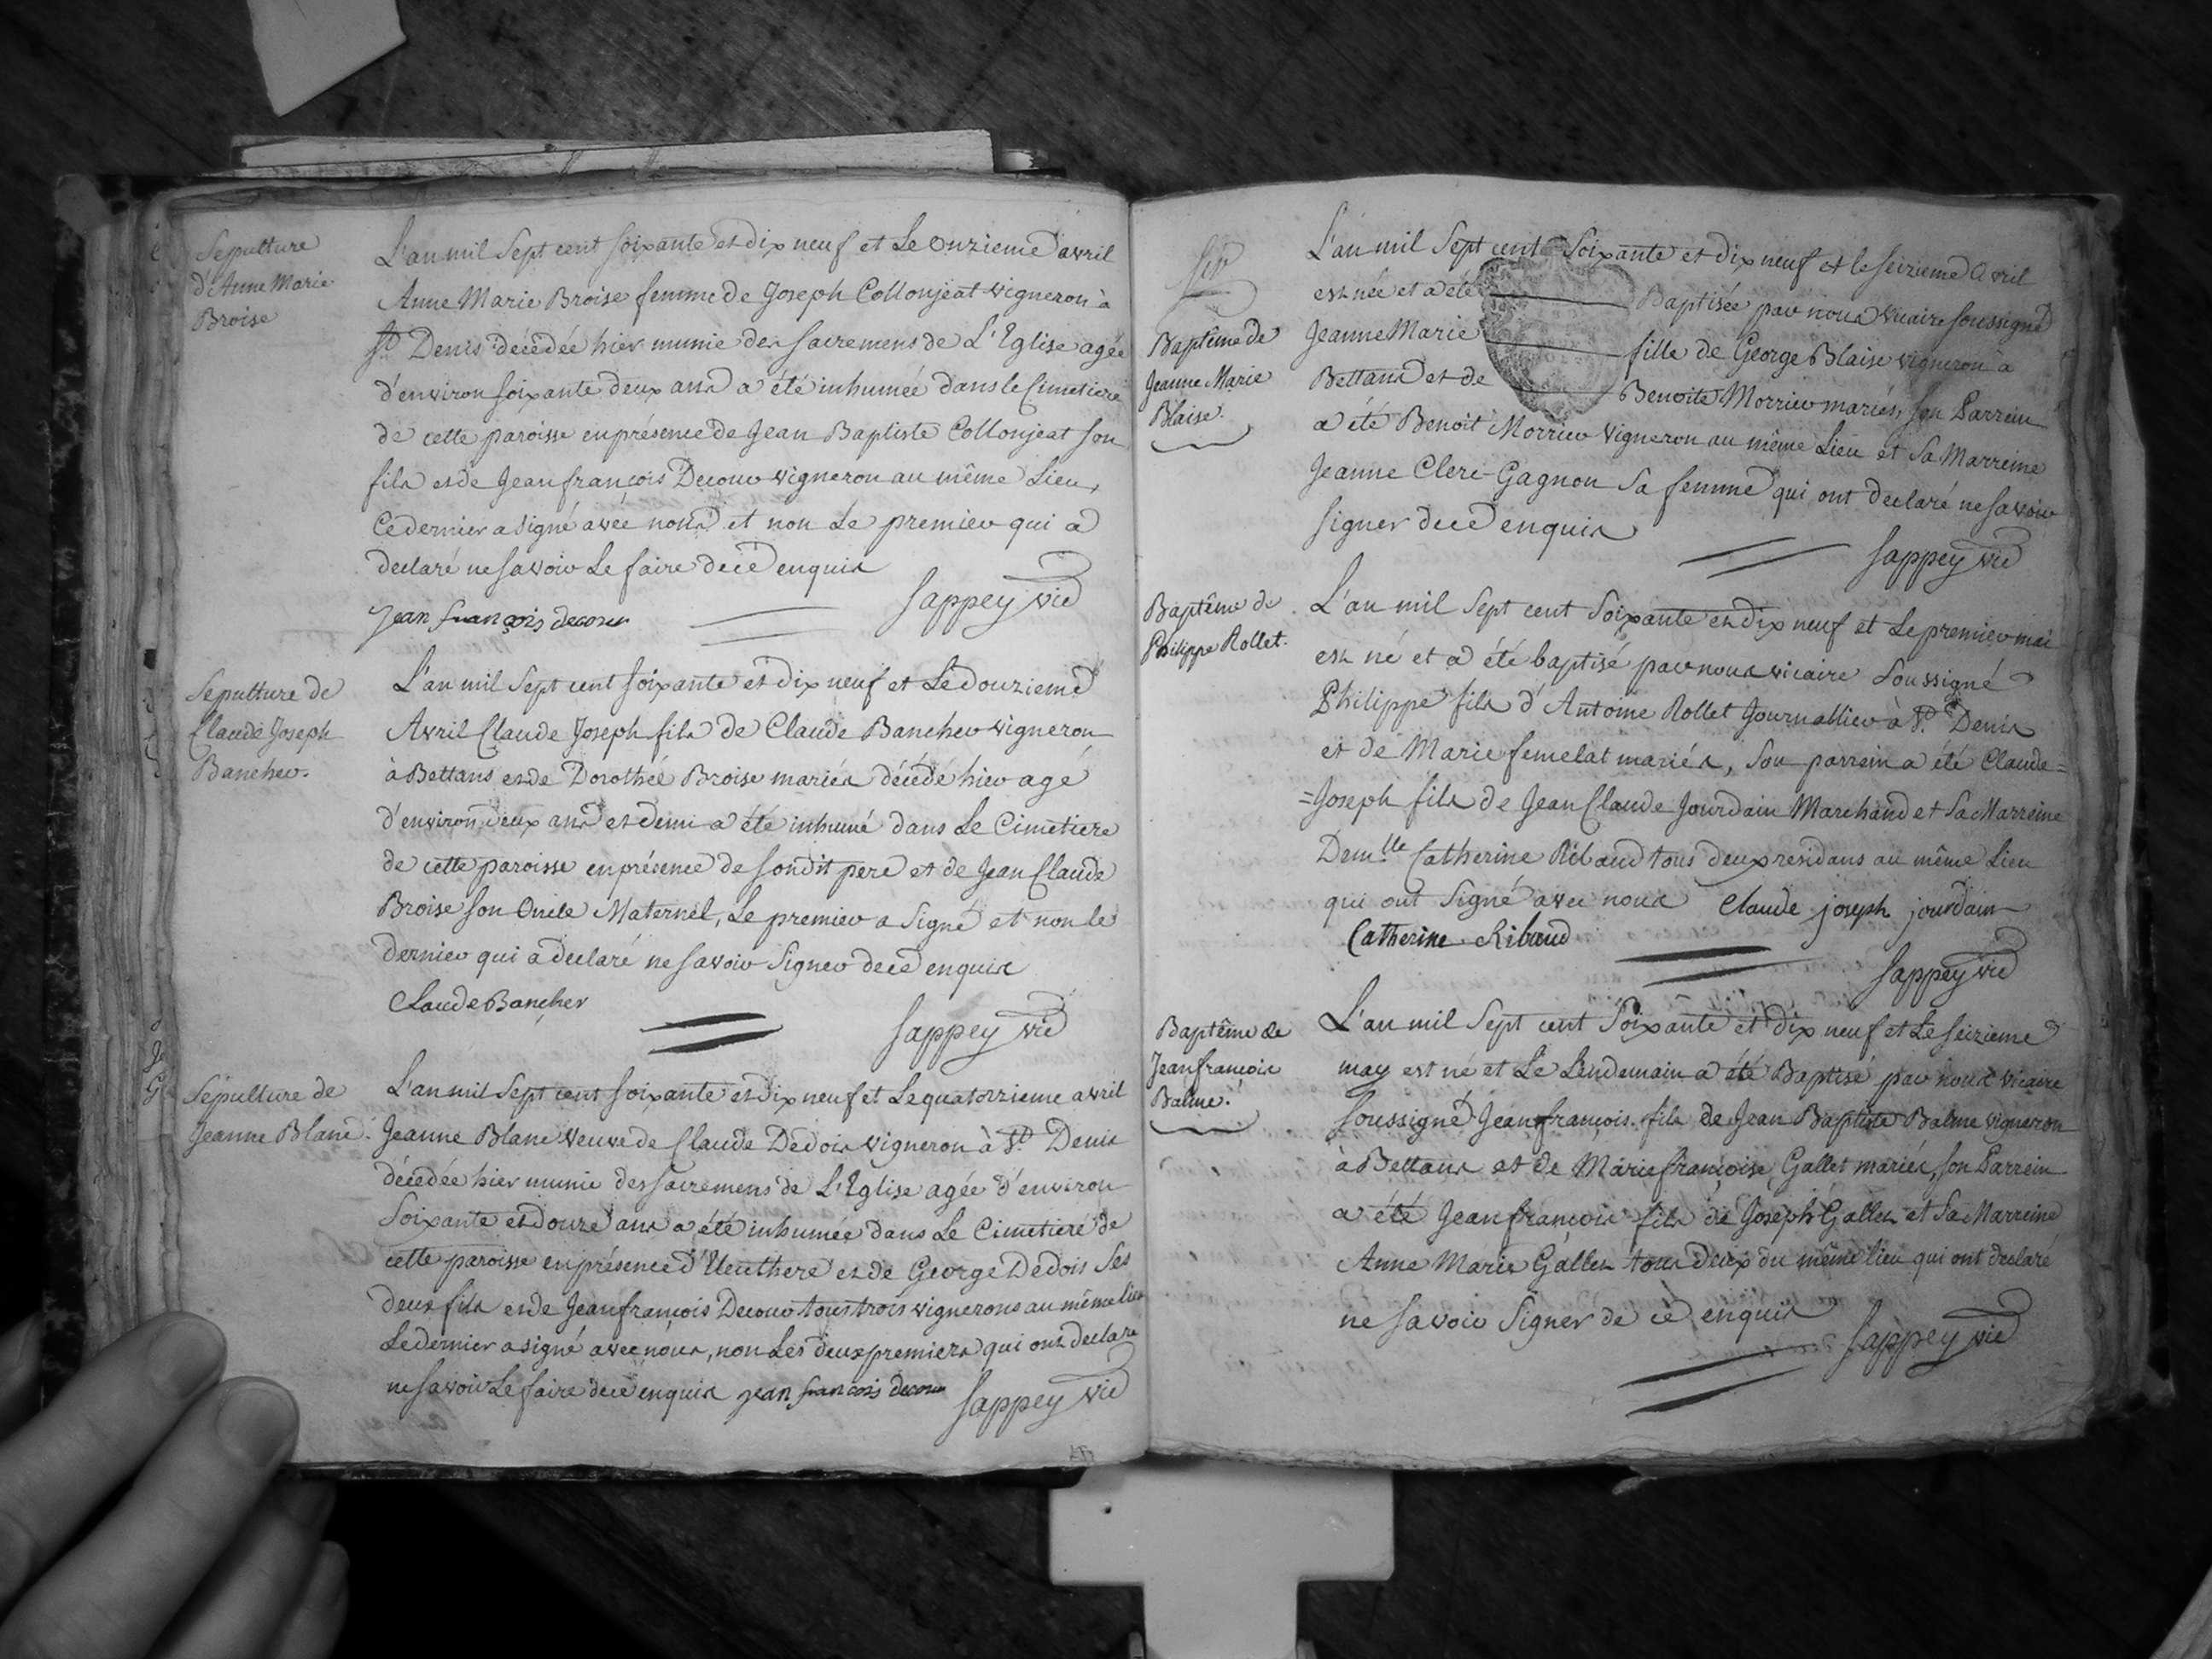 Sepulture
d'Anne Marie
Broise
L'an mil sept cent soixante et dix neuf et Le onzieme avril
Anne Marie Broise femme de Joseph Collonjeat vigneron à
St. Denis décédée hier munie des sacremens de L'Eglise agée
d'environ soixante deux ans a été inhumée dans le Cimetiere
de cette paroisse en présence de Jean Baptiste Collonjeat son
fils et de Jean françois Decour vigneron au même Lieu,
Ce dernier a signé avec nous et non Le premier qui a
declaré ne savoir Le faire de ce enquis
Jean françois decour
Sappey vic
Sepulture de
Claude Joseph
Bancher.
L'an mil sept cent soixante et dix neuf et Le douzieme
Avril Claude Joseph fils de Claude Bancher vigneron
à Bettans et de Dorothée Broise mariés décédé hier agé
d'environ deux ans et demi a été inhumé dans Le Cimetiere
de cette paroisse en présence de son dit pere et de Jean Claude
Broise son Oncle Maternel, Le premier a signé et non le
dernier qui a declaré ne savoir signer de ce enquis
Claude Bancher
Sappey vic
Sepulture de
Jeanne Blanc.
L'an mil sept cent soixante et dix neuf et Le quatorzieme avril
Jeanne Blanc veuve de Claude Dedois vigneron à St. Denis
décédée hier munie des sacremens de L'Eglise agée d'environ
soixante et douze ans a été inhumée dans Le Cimetiere de
cette paroisse en présence d'Uleuthere et de George Dedois ses
deux fils et de Jean françois Decour tous trois vignerons au même lieu
Le dernier a signé avec nous, non Les deux premiers qui ont declaré
ne savoir Le faire de ce enquis Jean françois decour Sappey vic
Baptême de
Jeanne Marie
Blaise.
L'an mil sept cent soixante et dix neuf et le seizieme avril
est née et a été Baptisée par nous vicaire soussigné
Jeanne Marie fille de George Blaise vigneron à
Bettans et de Benoite Morrier mariés, son Parrein
a été Benoit Morrier vigneron au même Lieu et sa Marreine
Jeanne Clerc-Gagnon sa femme qui ont declaré ne savoir
signer de ce enquis
Sappey vic
Baptême de
Philippe Rollet.
L'an mil sept cent soixante et dix neuf et Le premier mai
est né et a été baptisé par nous vicaire soussigné
Philippe fils d'Antoine Rollet Journallier à St. Denis
et de Marie femelat mariés, son parrein a été Claude=
=Joseph fils de Jean Claude Jourdain Marchand et sa Marreine
Demlle Catherine Ribaud tous deux residans au même Lieu
qui ont signé avec nous Claude joseph jourdain
Catherine Ribaud
Sappey vic
Baptême de
Jean françois
Balme.
L'an mil sept cent soixante et dix neuf et Le seizieme
may est né et Le Lendemain a été Baptisé par nous vicaire
soussigné Jean françois fils de Jean Baptiste Balme vigneron
à Bettans et de Marie françoise Gallet mariés, son Parrein
a été Jean françois fils de Joseph Gallet et sa Marreine
Anne Marie Gallet tous deux du même lieu qui ont declaré
ne savoir signer de ce enquis
Sappey vic